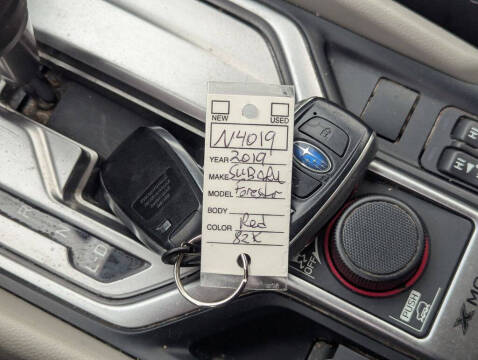 NEW USED
N4019
YEAR 2019
MAKE SUBARU
MODEL Forester
BODY
COLOR Red
82K
R
N
D
OFF
PUSH
X MO
HI
HI